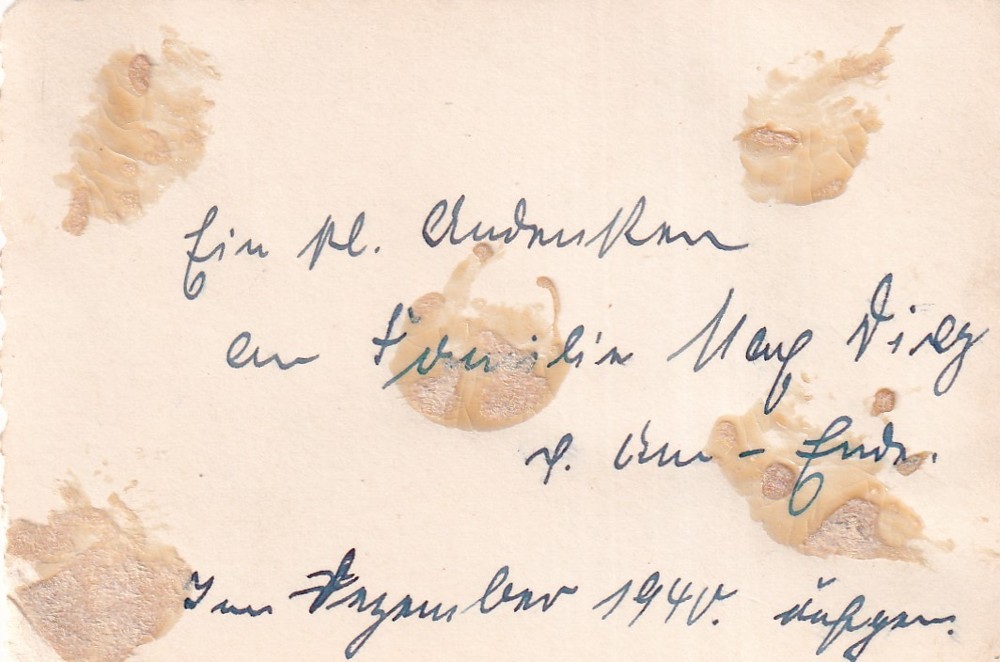 Ein kl. Andenken
an Familie Max
Am - Ende.
Im Dezember 1940. aufgen.